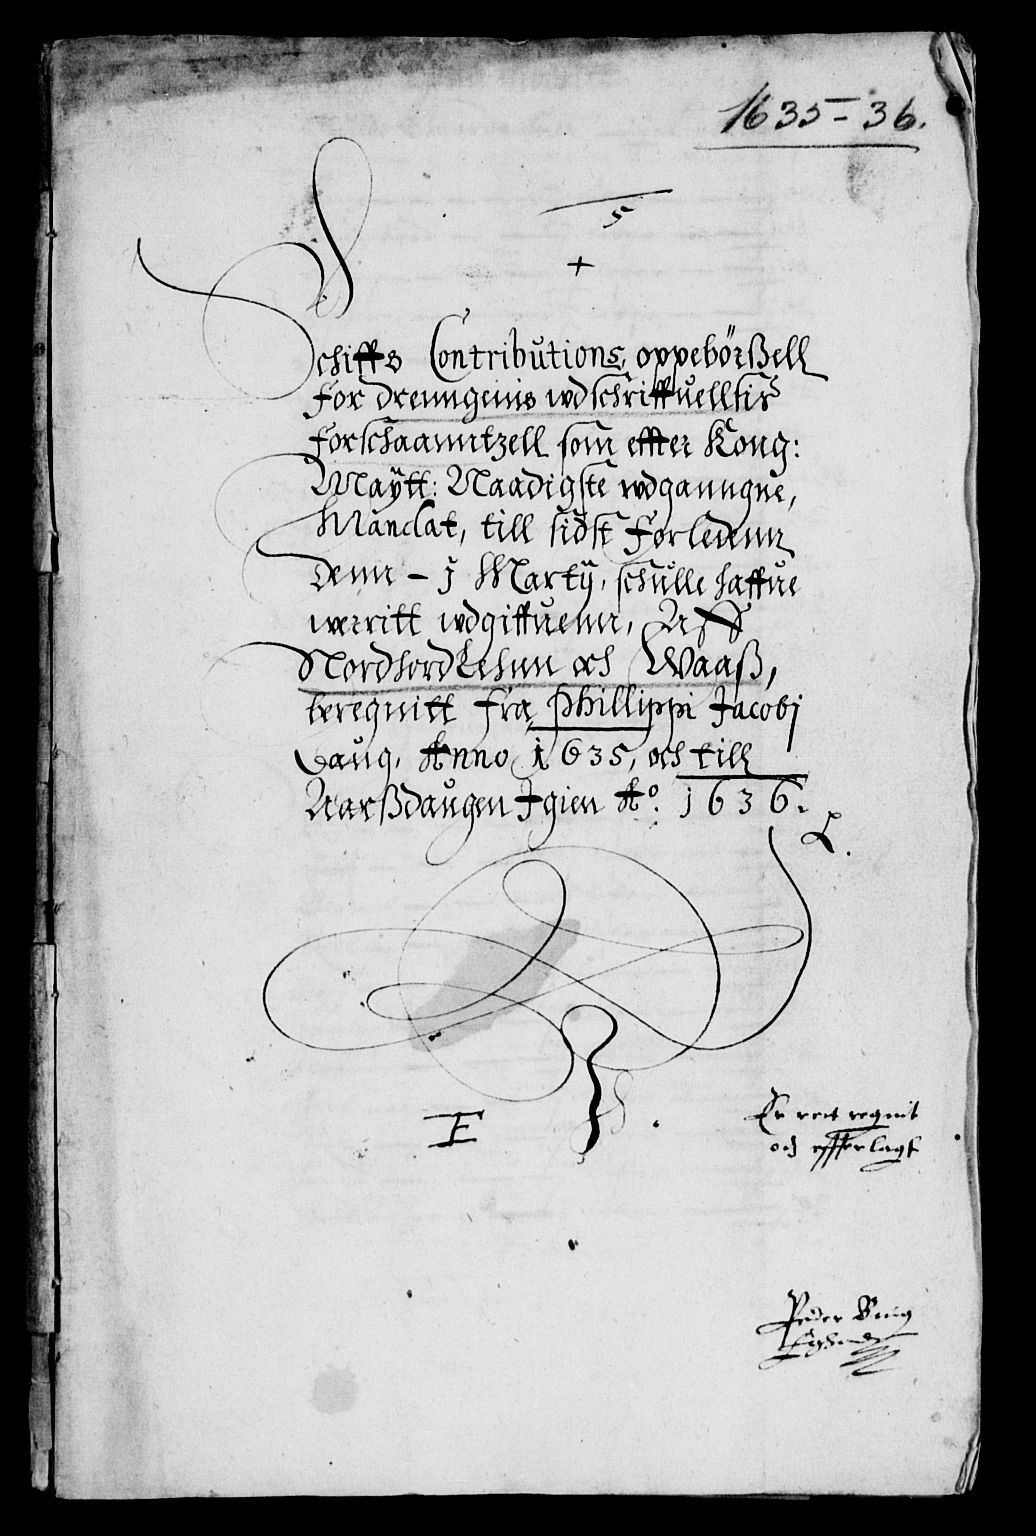 1635-36.
5
+
Schiffs Contributions, oppebörßell
For drenngenis wdschriffuelltir
Forschaanntzell som effter Kong:
Maÿtt: Naadigste wdganngne,
Mandat, till sidst Forledenn
Denn - j Martÿ, schulle haffue
werritt wdgiffuenn, Aff
Nordhordlehnn och Waaß,
beregnitt fra Phillippi Jacobj
daug, Anno 1635, och till
Aarßdaugen Igien Ao. 1636.
E
Er ret regnit
och effterlagt
Peder